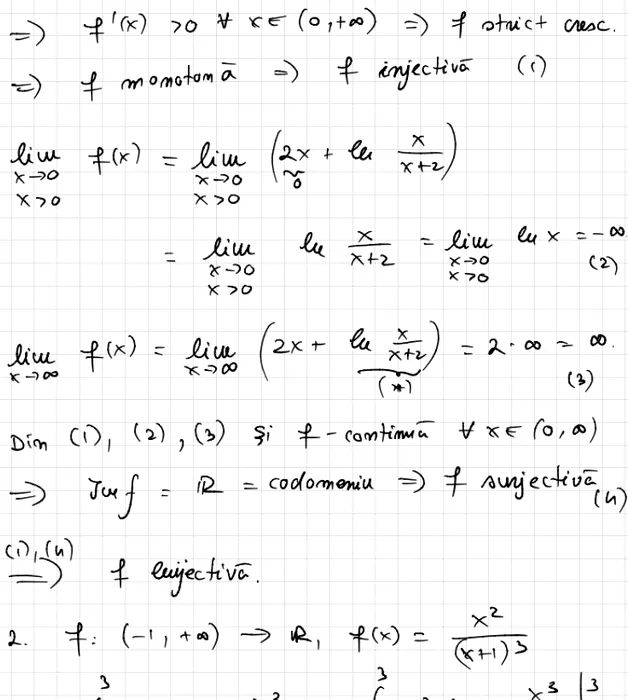 => f'(x) >0 ∀ x∈ (0,+∞) => f strict cresc.
=> f monotonă => f injectivă (1)
lim x→0 x>0 f(x) = lim x→0 x>0 (2x + ln x/(x+2))
= lim x→0 x>0 ln x/(x+2) = lim x→0 x>0 ln x = -∞ (2)
lim x→∞ f(x) = lim x→∞ (2x + ln x/(x+2)) = 2·∞ = ∞. (*) (3)
Din (1), (2), (3) și f-continuă ∀ x∈ (0,∞)
=> Im f = ℝ = codomeniu => f surjectivă (4)
(1),(4) => f bijectivă.
2. f: (-1,+∞) → ℝ, f(x) = x²/(x+1)³
3 3 x³ |3